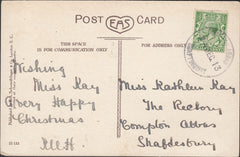 POST CARD
EAS
THIS SPACE
IS FOR COMMUNICATION ONLY
FOR ADDRESS ONLY.
Wishing
Miss Kay
a Very Happy
Christmas
Miss Kathleen Kay
The Rectory
Compton Abbas
Shaftesbury